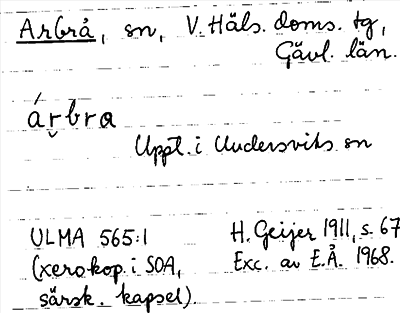 Arbrå, sn, V. Häls. doms. tg,
Gävl. län.
árbra
Uppt. i Undersviks sn
ULMA 565:1
(xerokop. i SOA,
särsk. kapsel).
H. Geijer 1911, s. 67
Exc. av E.Å. 1968.